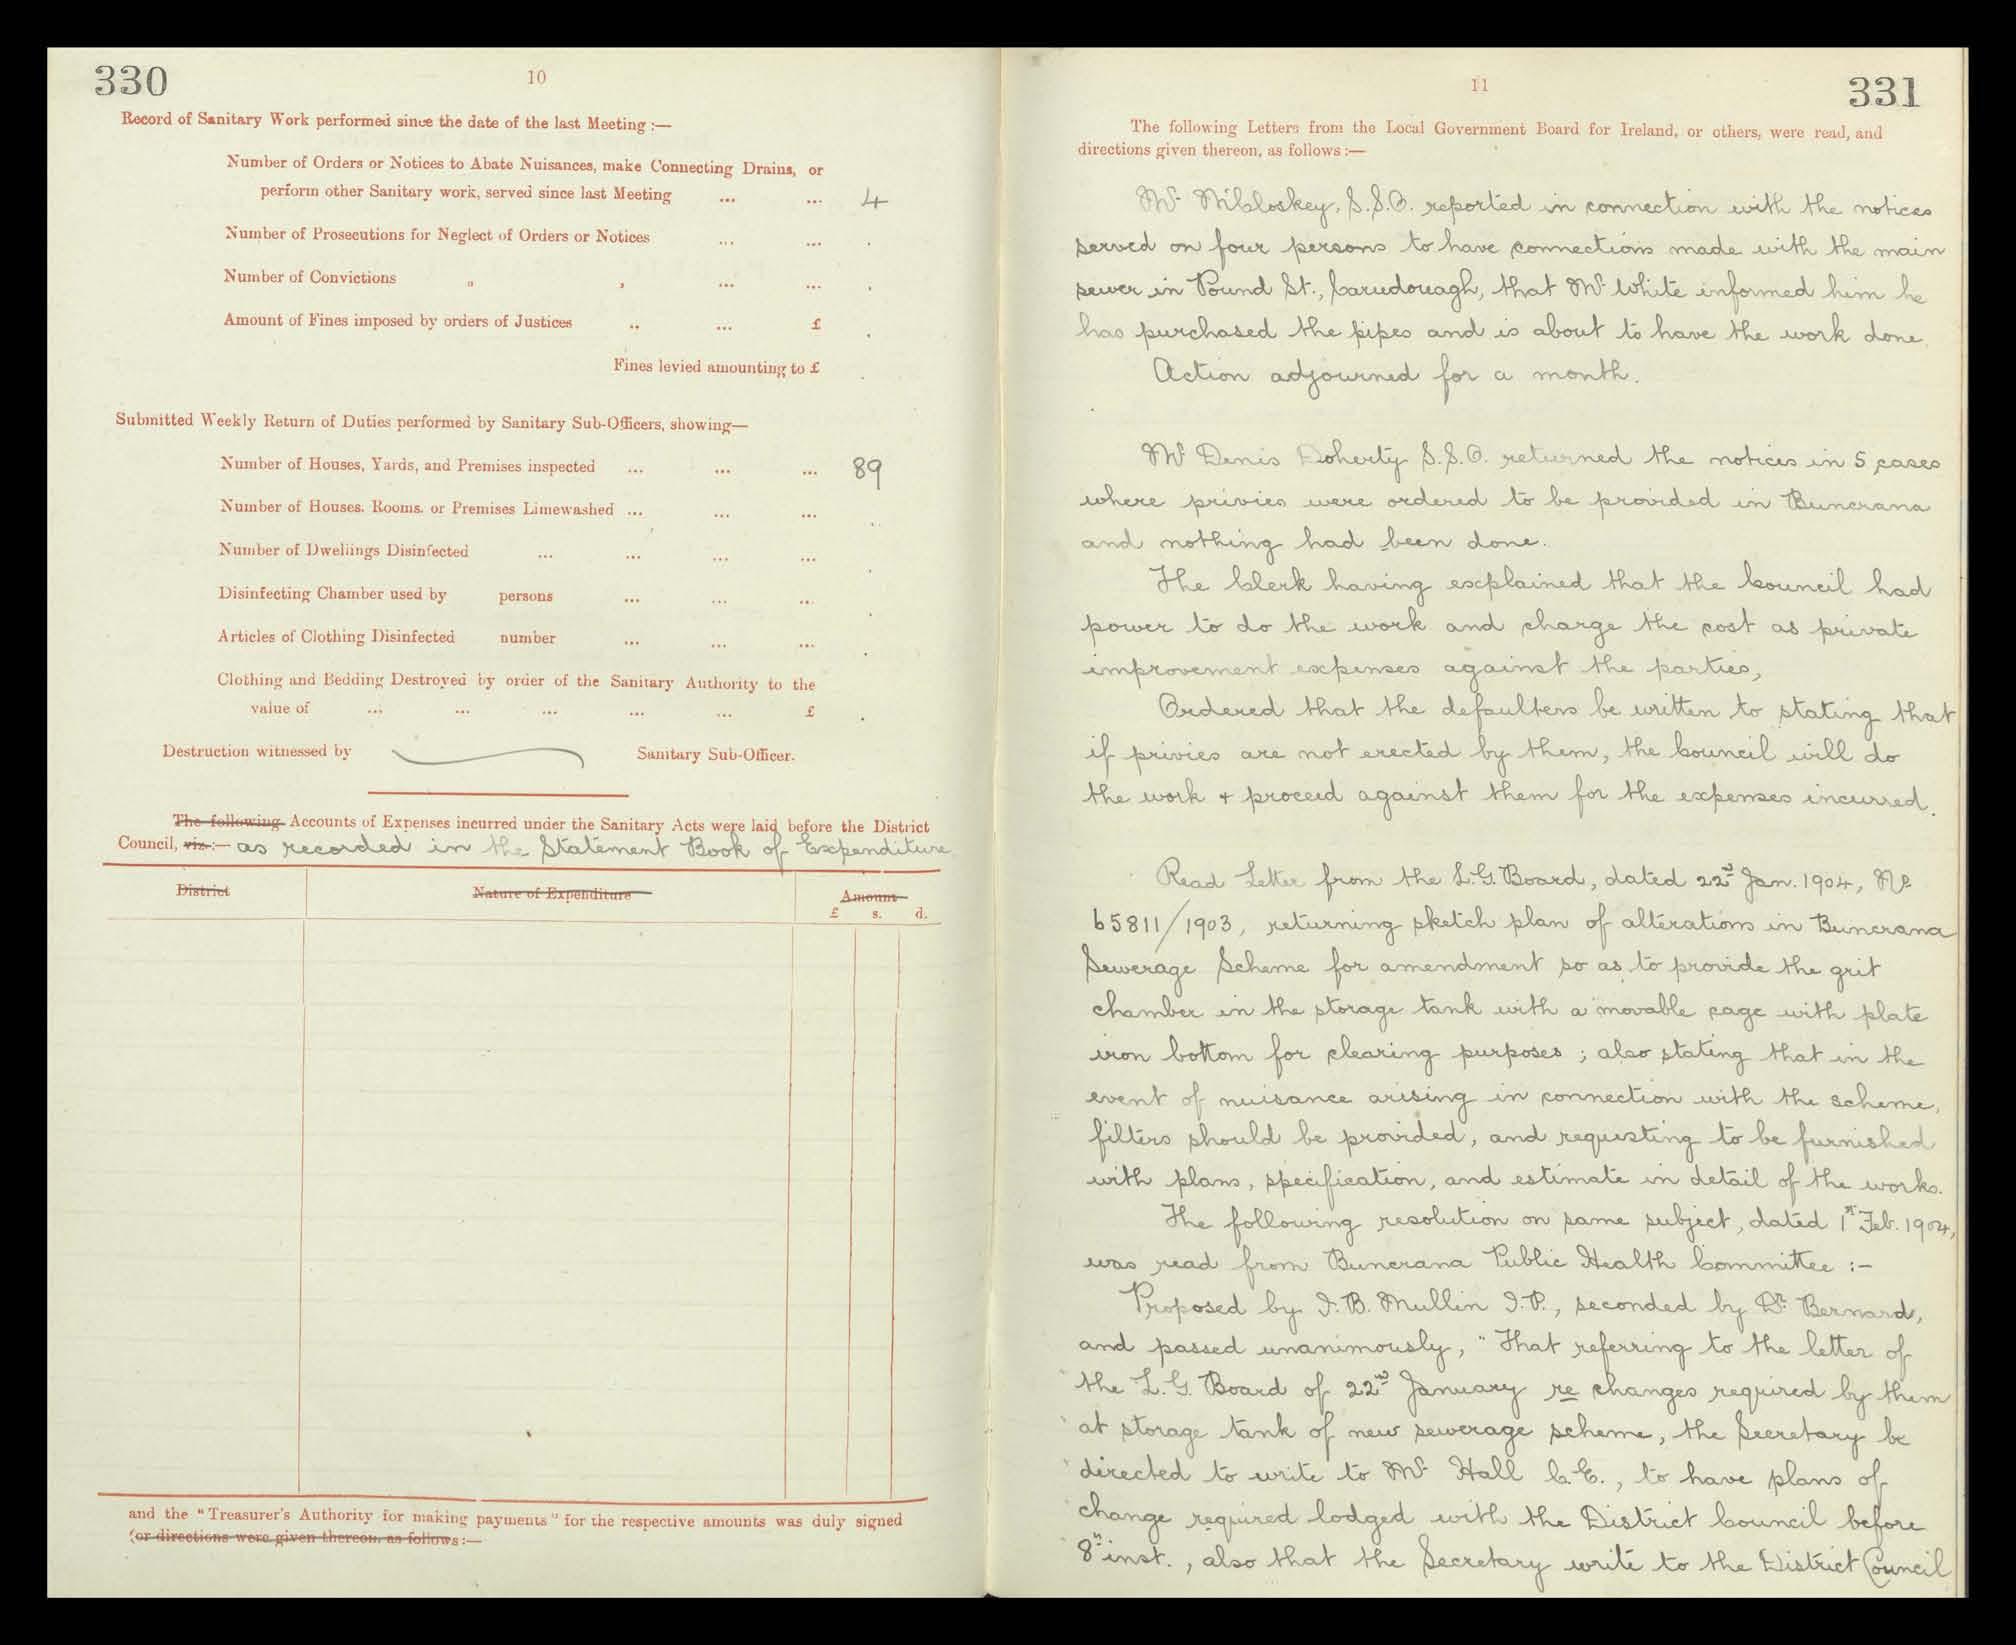 330
10
Record of Sanitary Work performed since the date of the last Meeting :—
Number of Orders or Notices to Abate Nuisances, make Connecting Drains, or
perform other Sanitary work, served since last Meeting ... ... 4
Number of Prosecutions for Neglect of Orders or Notices ... ... .
Number of Convictions „ , ... ... .
Amount of Fines imposed by orders of Justices .. ... £ .
Fines levied amounting to £ .
Submitted Weekly Return of Duties performed by Sanitary Sub-Officers, showing—
Number of Houses, Yards, and Premises inspected ... ... ... 89
Number of Houses. Rooms. or Premises Limewashed ... ... ... .
Number of Dwellings Disinfected ... ... ... ... .
Disinfecting Chamber used by persons ... ... ... .
Articles of Clothing Disinfected number ... ... ... .
Clothing and Bedding Destroyed by order of the Sanitary Authority to the
value of ... ... ... ... ... £ .
Destruction witnessed by Sanitary Sub-Officer.
The following Accounts of Expenses incurred under the Sanitary Acts were laid before the District
Council, viz. :— as recorded in the Statement Book of Expenditure
District Nature of Expenditure Amount
£ s. d.
and the "Treasurer's Authority for making payments" for the respective amounts was duly signed
(or directions were given thereon, as follows :—
11
331
The following Letters from the Local Government Board for Ireland, or others, were read, and
directions given thereon, as follows :—
Mr. McCloskey, S.S.O. reported in connection with the notices
served on four persons to have connections made with the main
sewer in Pound St., Carndonagh, that Mr. White informed him he
has purchased the pipes and is about to have the work done.
Action adjourned for a month.
Mr. Denis Doherty S.S.O. returned the notices in 5 cases
where privies were ordered to be provided in Buncrana
and nothing had been done.
The Clerk having explained that the Council had
power to do the work and charge the cost as private
improvement expenses against the parties,
Ordered that the defaulters be written to stating that
if privies are not erected by them, the Council will do
the work + proceed against them for the expenses incurred.
Read Letter from the L.G. Board, dated 22nd Jan. 1904, No.
65811/1903, returning sketch plan of alterations in Buncrana
Sewerage Scheme for amendment so as to provide the grit
chamber in the storage tank with a movable cage with plate
iron bottom for clearing purposes ; also stating that in the
event of nuisance arising in connection with the scheme,
filters should be provided, and requesting to be furnished
with plans, specification, and estimate in detail of the works.
The following resolution on same subject, dated 1st Feb. 1904,
was read from Buncrana Public Health Committee :-
Proposed by J. B. Mullin J.P., seconded by Dr. Bernard,
and passed unanimously, "That referring to the letter of
the L.G. Board of 22nd January re changes required by them
at storage tank of new sewerage scheme, the Secretary be
directed to write to Mr. Hall C.E., to have plans of
change required lodged with the District Council before
8th inst., also that the Secretary write to the District Council